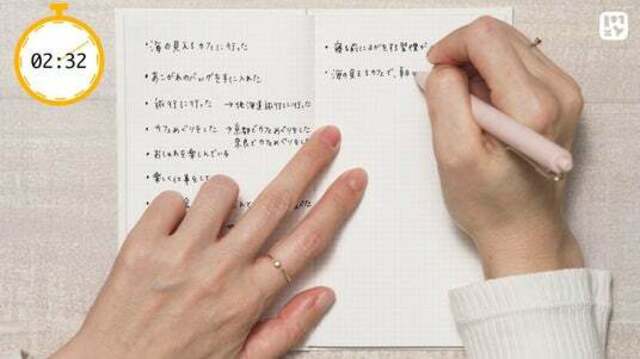 02:32
・海の見えるカフェに行った
・あこがれのバッグを手に入れた
・旅行に行った → 北海道旅行に行った
・カフェめぐりをした → 京都でカフェめぐりをした
奈良でカフェめぐりをした
・おしゃれを楽しんでいる
・楽しく仕事をして
・寝る前にヨガをする習慣が
・海の見えるカフェで、